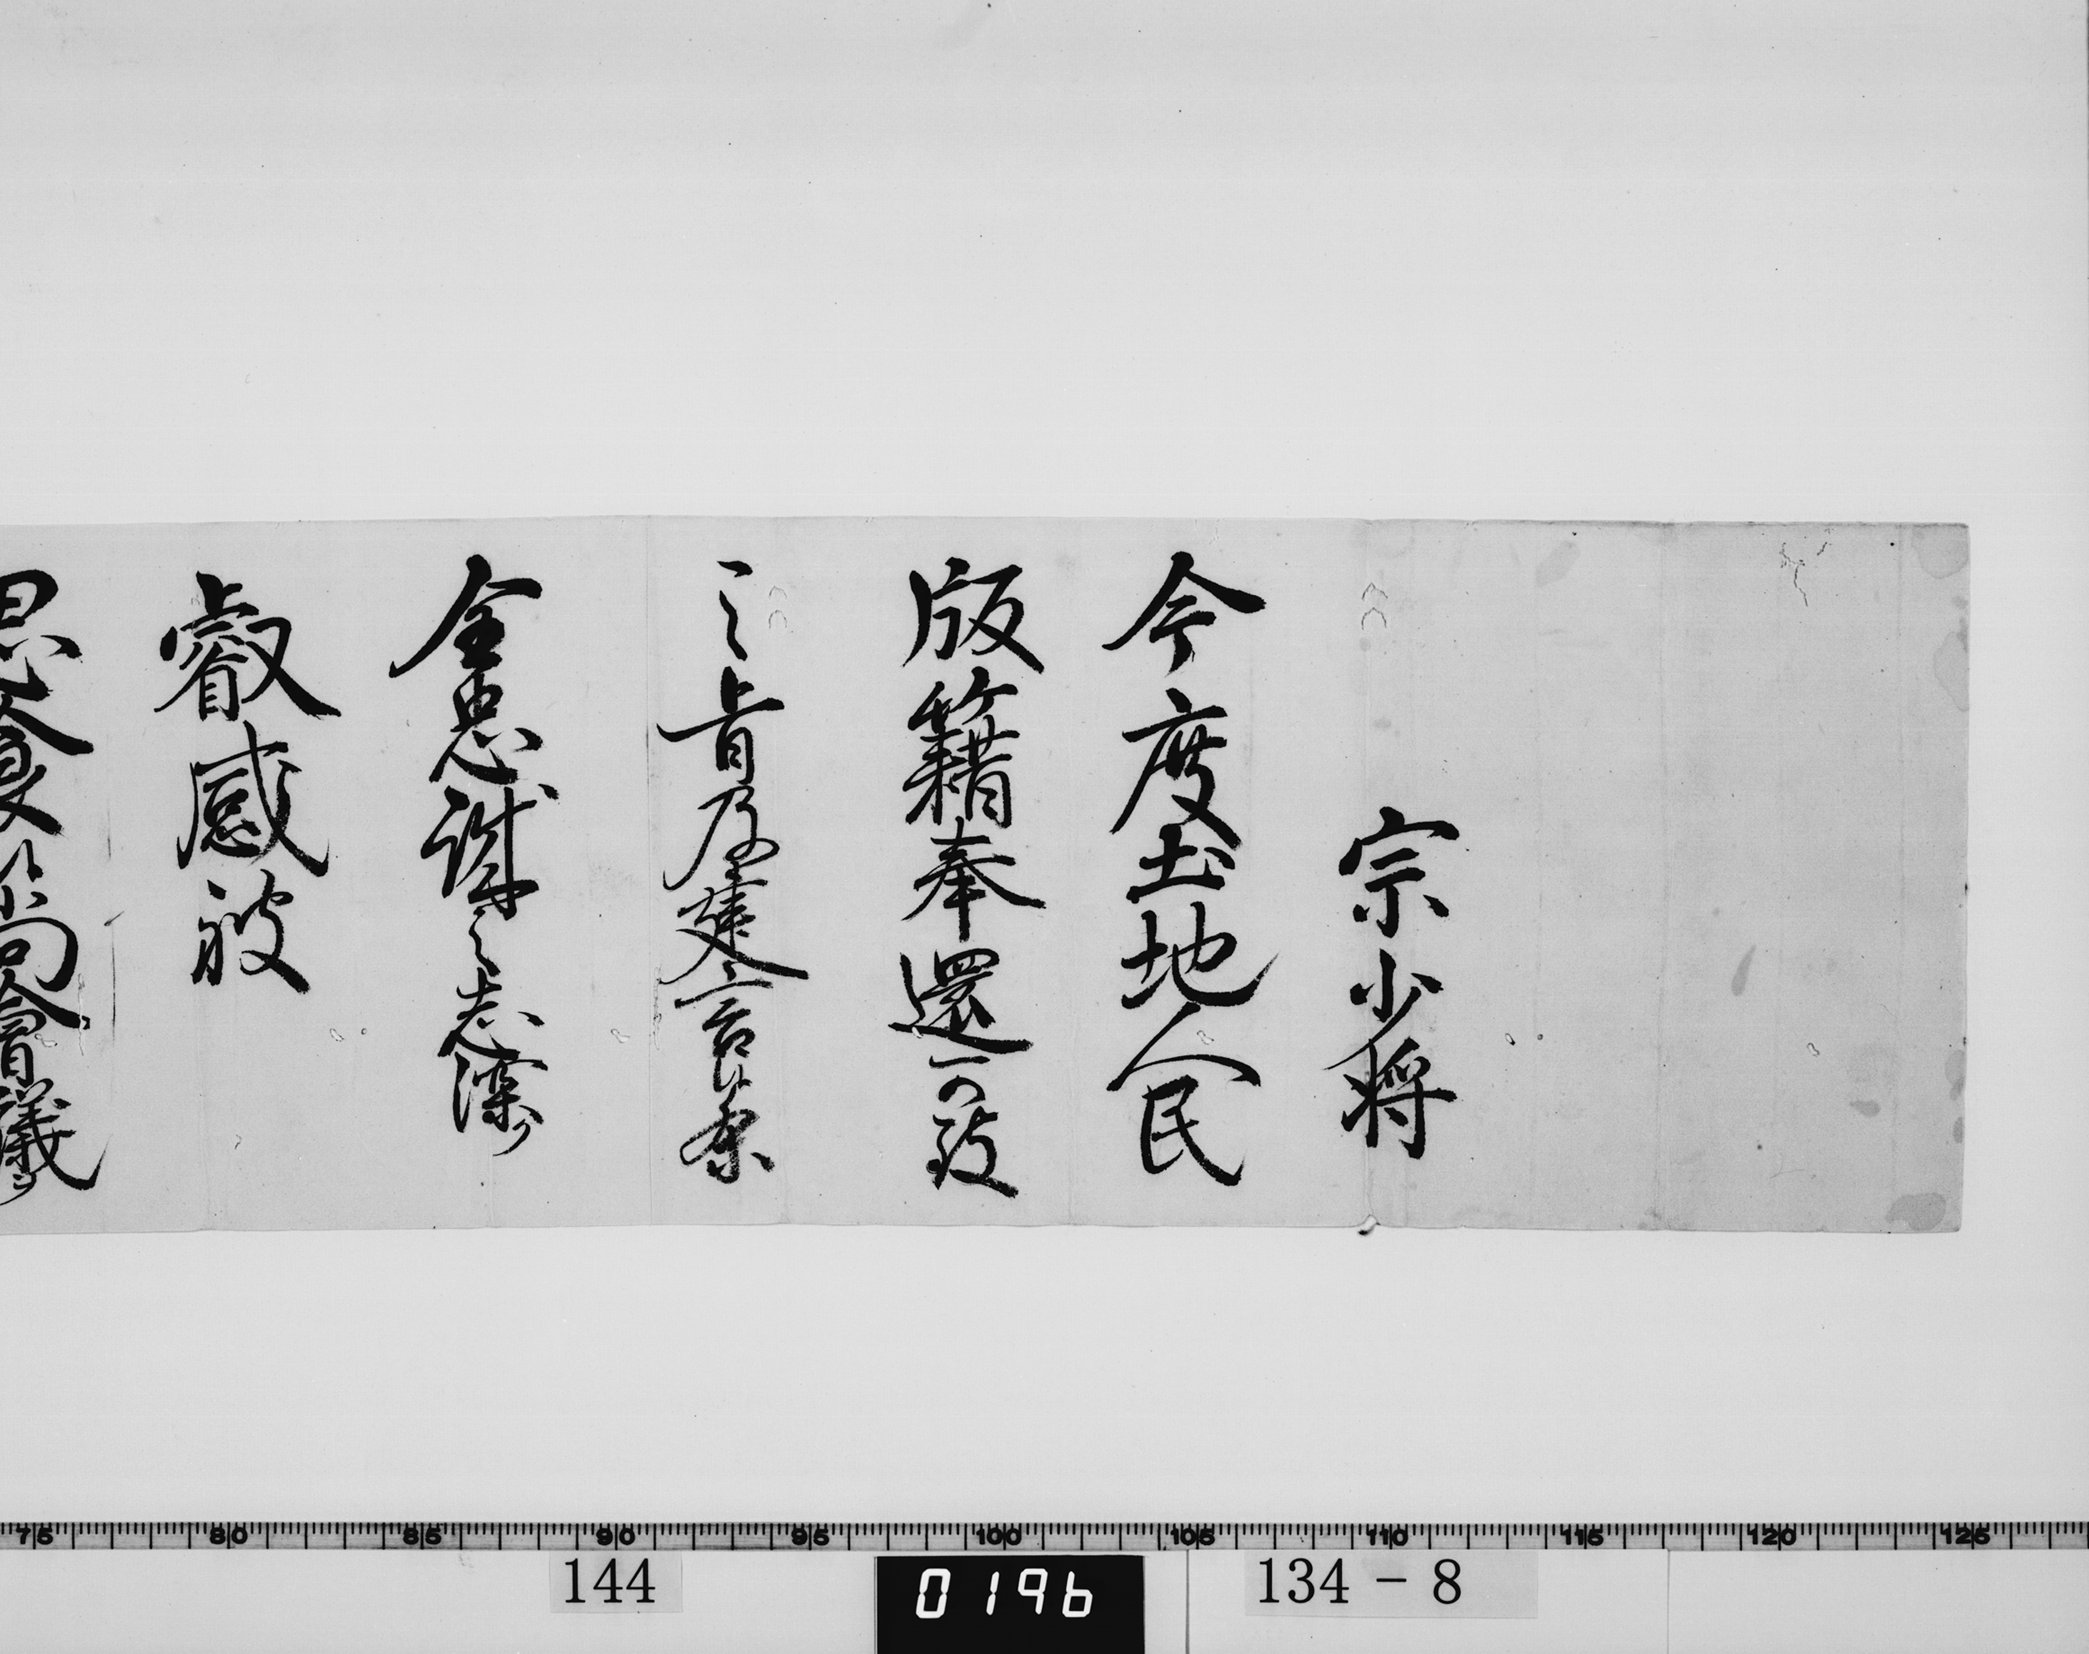 宗少将
今度土地人民
版籍奉還可致
之旨及建言候条
全忠誠之志深
叡感被
思食候尚會議
75 80 85 90 95 100 105 110 115 120 125
144
0196
134-8